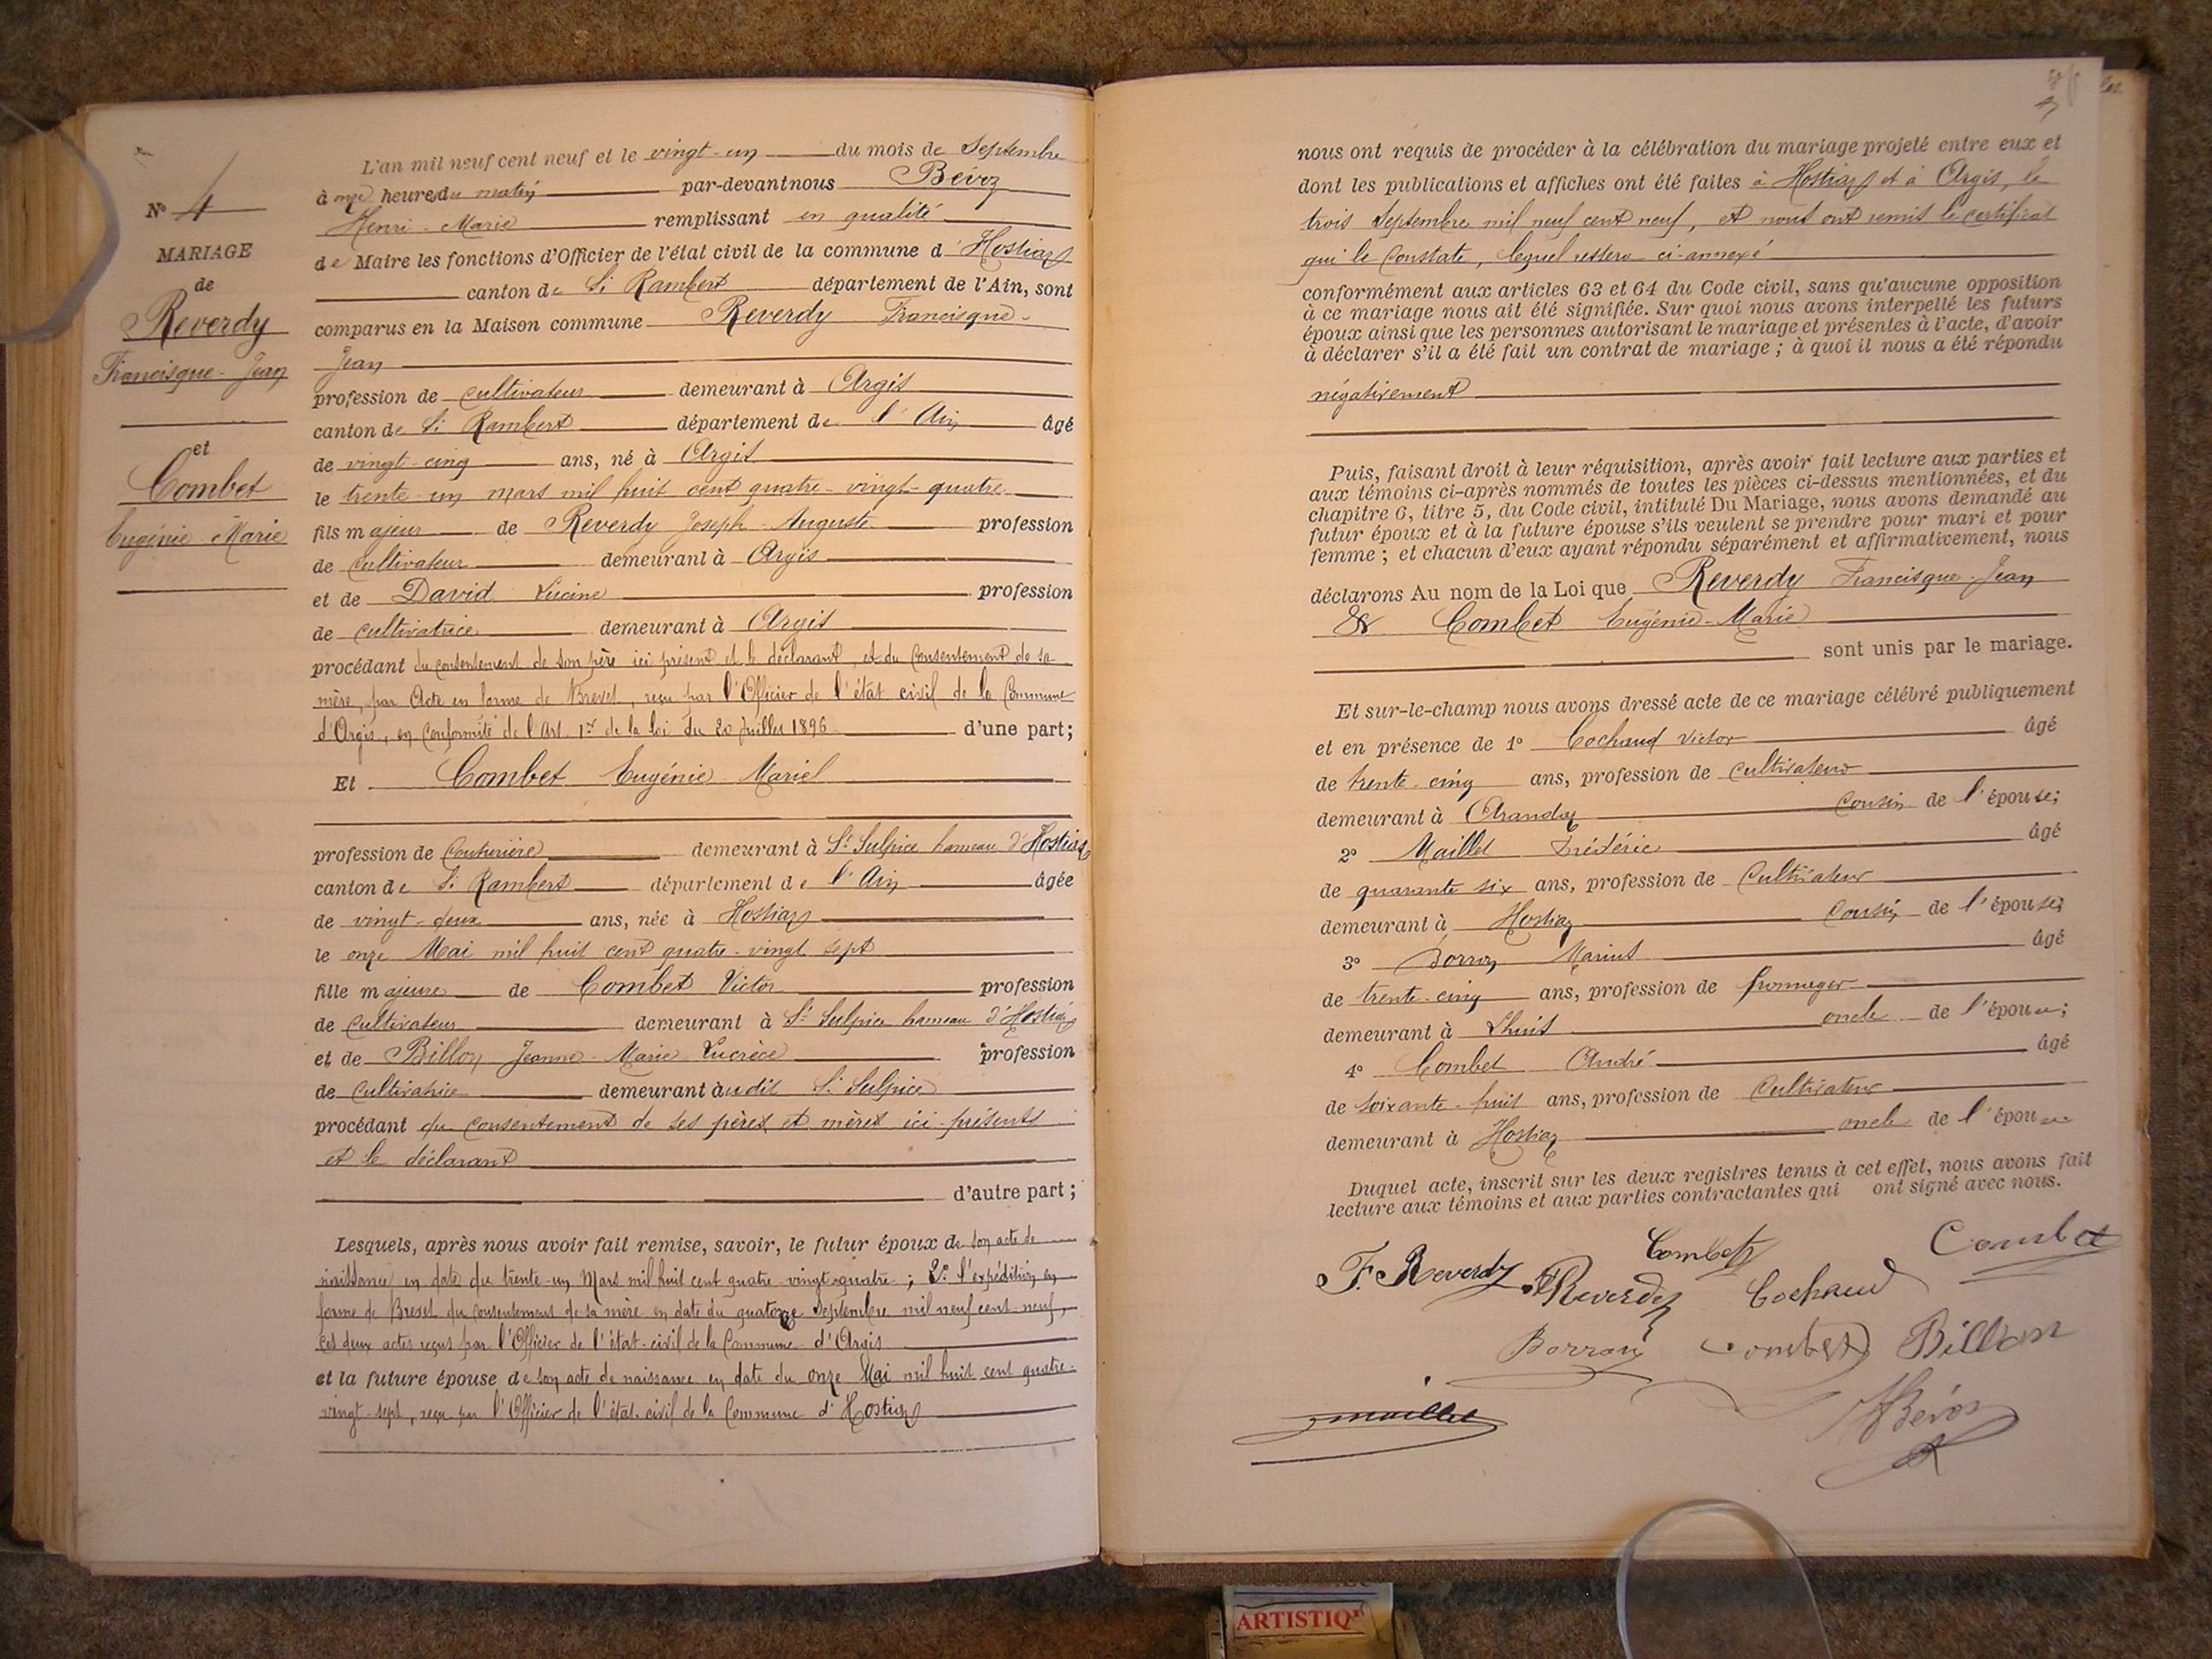 N° 4
MARIAGE
de
Reverdy
Francisque-Jean
et
Combet
Eugénie-Marie
L'an mil neuf cent neuf et le vingt-un du mois de Septembre
à onze heures du matin par-devant nous Bévoz
Henri-Marie remplissant en qualité
de Maire les fonctions d'Officier de l'état civil de la commune d'Hostiaz
canton de St Rambert département de l'Ain, sont
comparus en la Maison commune Reverdy Francisque-
Jean
profession de cultivateur demeurant à Argis
canton de St Rambert département de l'Ain âgé
de vingt-cinq ans, né à Argis
le trente-un mars mil huit cent quatre-vingt-quatre
fils majeur de Reverdy Joseph-Auguste profession
de cultivateur demeurant à Argis
et de David Lucine profession
de cultivatrice demeurant à Argis
procédant du consentement de son père ici présent et le déclarant, et du consentement de sa
mère, par Acte en forme de Brevet, reçu par l'Officier de l'état civil de la Commune
d'Argis, en conformité de l'Art. 1er de la loi du 20 Juillet 1896 d'une part;
Et Combet Eugénie Mariel
profession de Couturière demeurant à St Sulpice hameau d'Hostiaz
canton de St Rambert département de l'Ain âgée
de vingt-deux ans, née à Hostiaz
le onze Mai mil huit cent quatre-vingt sept
fille majeure de Combet Victor profession
de Cultivateur demeurant à St Sulpice hameau d'Hostiaz
et de Billon Jeanne-Marie-Lucrèce profession
de Cultivatrice demeurant audit St Sulpice
procédant du consentement de ses pères et mères ici présents
et le déclarant
d'autre part;
Lesquels, après nous avoir fait remise, savoir, le futur époux de son acte de
naissance en date du trente-un Mars mil huit cent quatre-vingt-quatre; 2° l'expédition en
forme de Brevet du consentement de sa mère en date du quatorze Septembre mil neuf cent-neuf,
ces deux actes reçus par l'Officier de l'état-civil de la Commune d'Argis
et la future épouse de son acte de naissance en date du onze Mai mil huit cent quatre-
vingt-sept, reçu par l'Officier de l'état-civil de la Commune d'Hostiaz
nous ont requis de procéder à la célébration du mariage projeté entre eux et
dont les publications et affiches ont été faites à Hostiaz et à Argis, le
trois Septembre mil neuf cent neuf, et nous ont remis le certificat
qui le constate, lequel restera ci-annexé
conformément aux articles 63 et 64 du Code civil, sans qu'aucune opposition
à ce mariage nous ait été signifiée. Sur quoi nous avons interpellé les futurs
époux ainsi que les personnes autorisant le mariage et présentes à l'acte, d'avoir
à déclarer s'il a été fait un contrat de mariage; à quoi il nous a été répondu
négativement
Puis, faisant droit à leur réquisition, après avoir fait lecture aux parties et
aux témoins ci-après nommés de toutes les pièces ci-dessus mentionnées, et du
chapitre 6, titre 5, du Code civil, intitulé Du Mariage, nous avons demandé au
futur époux et à la future épouse s'ils veulent se prendre pour mari et pour
femme; et chacun d'eux ayant répondu séparément et affirmativement, nous
déclarons Au nom de la Loi que Reverdy Francisque-Jean
& Combet Eugénie-Marie
sont unis par le mariage.
Et sur-le-champ nous avons dressé acte de ce mariage célébré publiquement
et en présence de 1° Cochaud Victor âgé
de trente-cinq ans, profession de cultivateur
demeurant à Arandas cousin de l'épouse;
2° Maillet Frédéric âgé
de quarante six ans, profession de Cultivateur
demeurant à Hostiaz Cousin de l'épouse;
3° Borron Marius âgé
de trente-cinq ans, profession de fromager
demeurant à Lhuis oncle de l'épouse;
4° Combet André âgé
de soixante-huit ans, profession de Cultivateur
demeurant à Hostiaz oncle de l'épouse
Duquel acte, inscrit sur les deux registres tenus à cet effet, nous avons fait
lecture aux témoins et aux parties contractantes qui ont signé avec nous.
F. Reverdy Reverdy Combet Cochaud Combet
Borron Combet Billon
maillet HBévoz
ARTISTIQ